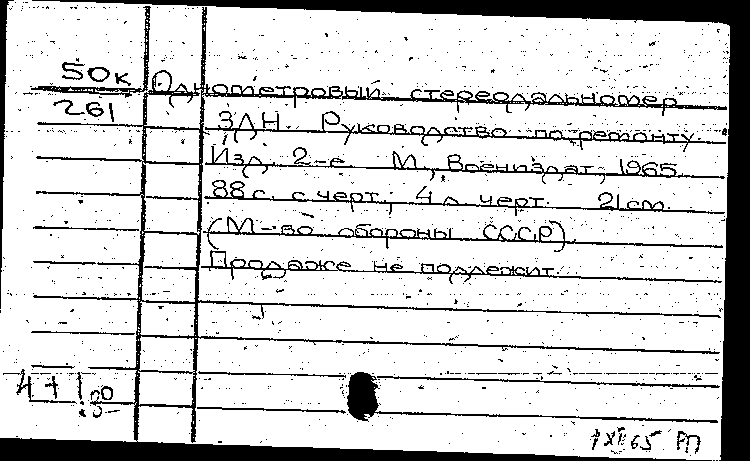 50к Однометровый стереодальномер
261 ЗДН. Руководство по ремонту
Изд. 2-е. М., Воениздат, 1965.
88 с. с черт.; 4 л. черт. 21 см.
(М-во обороны СССР).
Продаже не подлежит.
4 + 1
XI 65 РП